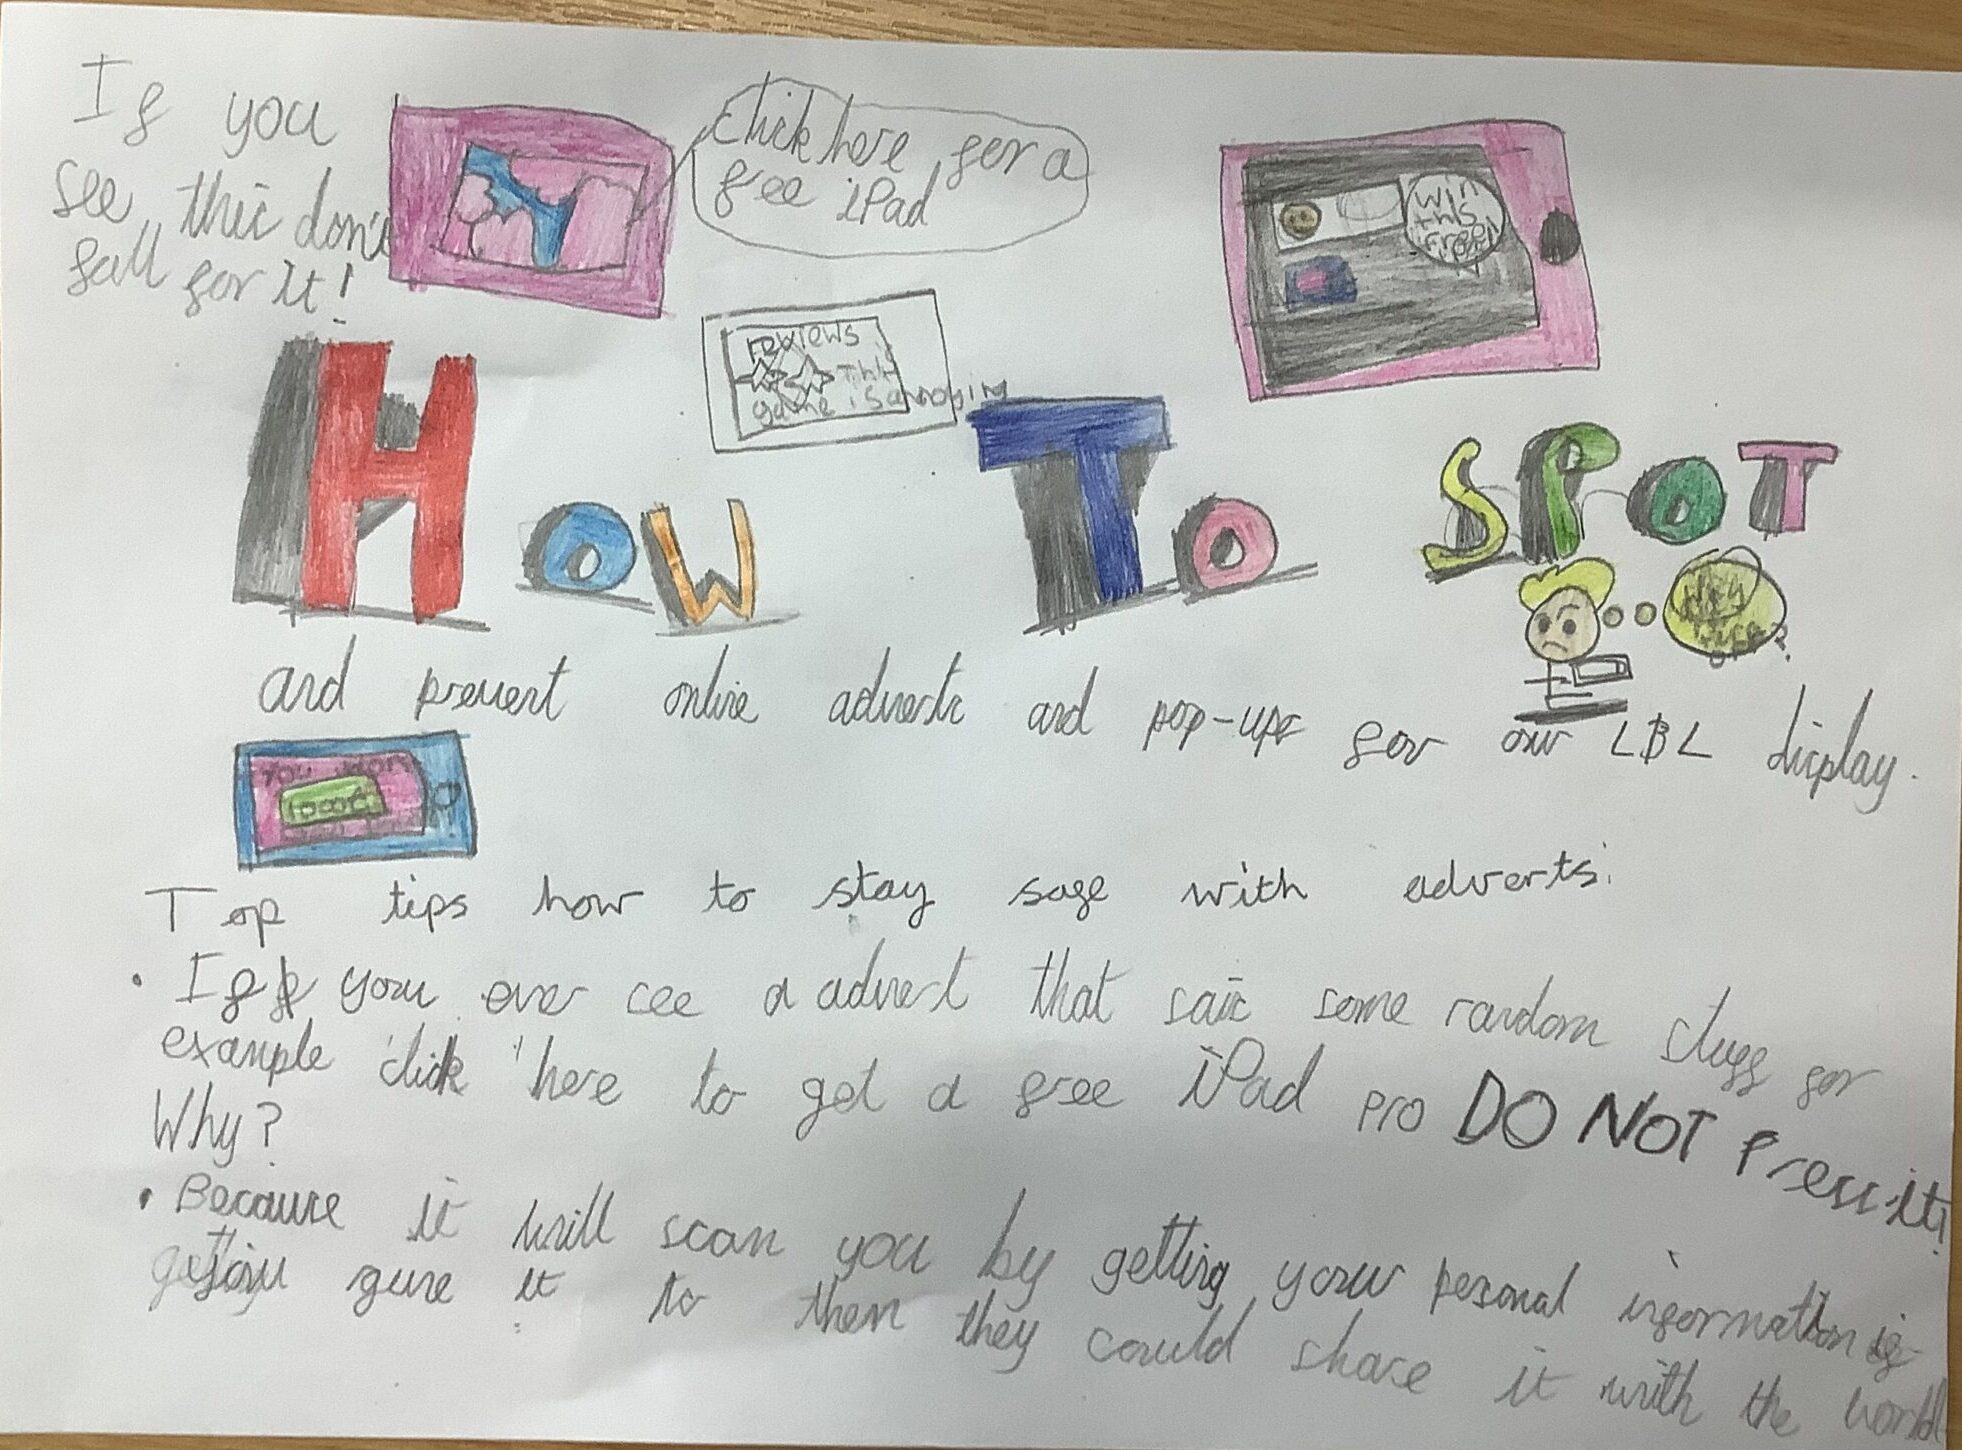 If you
see this don't
fall for it!
Click here for a
free iPad
win
this
free
reviews
this
game is annoying
HOW TO SPOT
and prevent online adverts and pop-ups for our LBL display.
you won
1000£
Top tips how to stay safe with adverts:
• If your ever see a advert that sais some random stuff for
example 'click' here to get a free iPad pro DO NOT Press it!
Why?
• Because it will scan you by getting your pesonal information if
you give it to them they could share it with the world